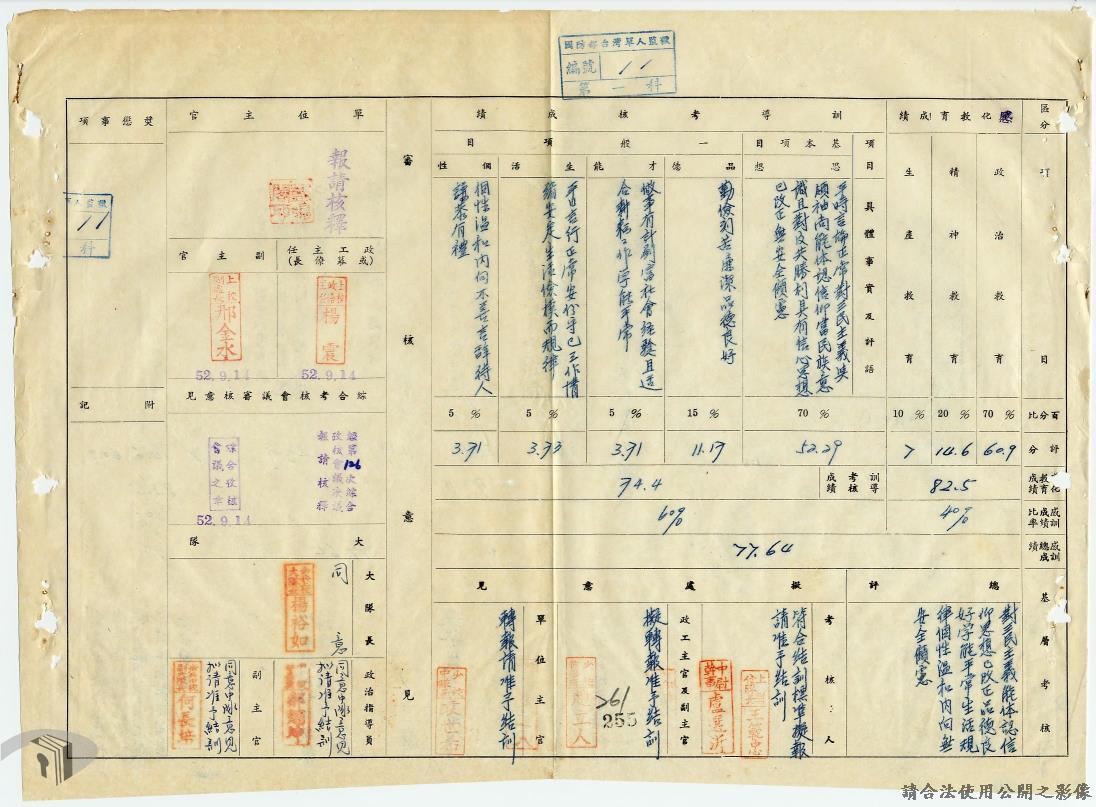 國防部台灣軍人監獄
編號 11
第一科
區分
項目
百分比
評分
感化教育成績
政治教育
精神教育
生產教育
70%
20%
10%
60.9
14.6
7
82.5
40%
訓導考核成績
項目
具體事實及評語
基本項目
思想
平時言論正常對三民主義與
領袖尚能体認信仰當民族意
識且對反共勝利具有信心思想
已改正無安全顧慮
70%
52.29
一般項目
品德
勤儉刻苦廉潔品德良好
15%
11.17
才能
做事有計劃富社會經驗且适
合耕耘工作学能平常
5%
3.71
生活
平日言行正常安份守己工作情
緒安定生活儉樸而規律
5%
3.73
個性
個性溫和內向不善言辭待人
謙恭有禮
5%
3.71
訓導考核成績
74.4
60%
感訓成績比率
感訓總成績
77.64
基層考核
總評
對三民主義能体認信
仰思想已改正品德良
好学能平常生活規
律個性溫和內向無
安全顧慮
擬處意見
考核人
符合結訓標準擬報
請准予結訓
政工主官及副主官
擬轉報准予結訓
261
255
單位主官
轉報請准予結訓
審核意見
單位主官
報請核釋
政工主任
(或幕僚長)
楊震
52.9.14
副主官
邢全水
52.9.14
綜合考核會議審核意見
經第126次綜合
考核會議決議
報請核釋
綜合考核
會議之章
52.9.14
大隊
大隊長
同意
楊裕如
政治指導員
同意中隊意見
擬請准予結訓
副主官
同意中隊意見
擬請准予結訓
獎懲事項
軍人監獄
11
科
附記
請合法使用公開之影像